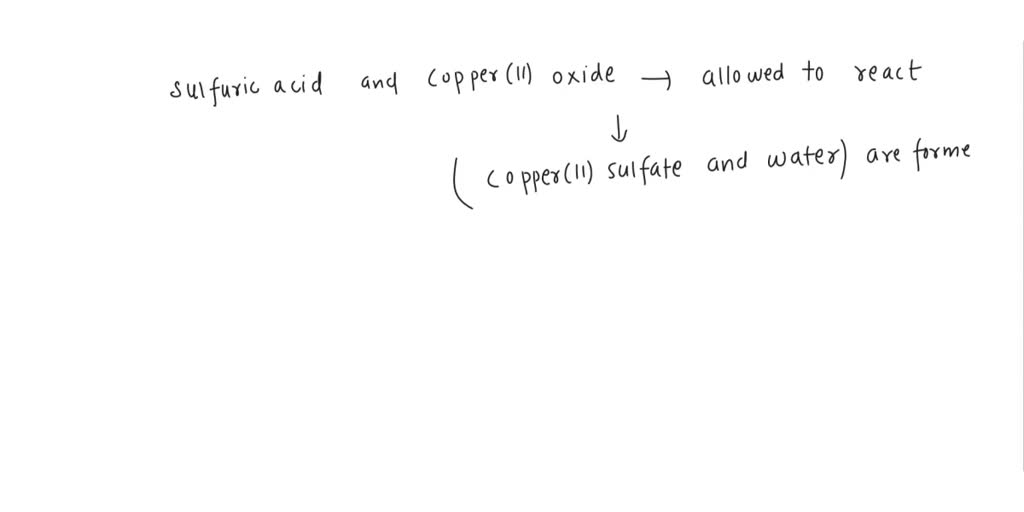 sulfuric acid and copper(II) oxide → allowed to react
↓
(copper(II) sulfate and water) are forme